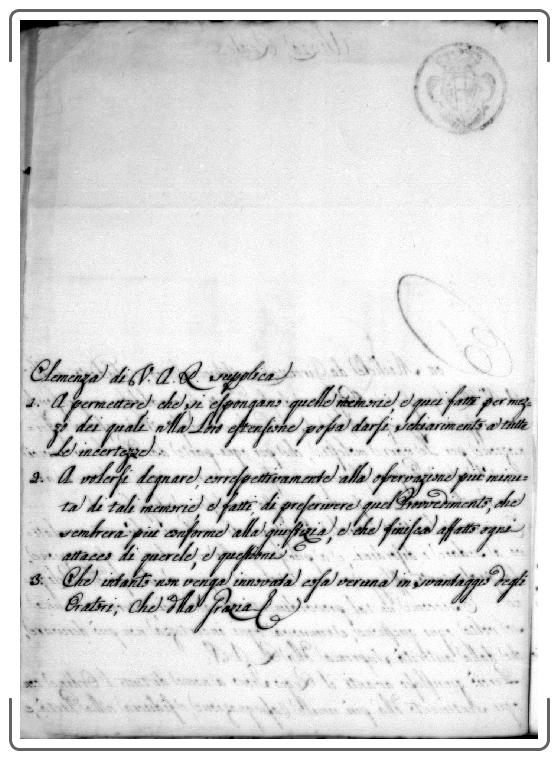 Clemenza di V. A. R. supplica
1. A permettere che si espongano quelle memorie, e quei fatti per mez-
zo dei quali nella loro estensione possa darsi schiarimento a tutte
Le incertezze
2. A volersi degnare correspettivamente alla osservazione più minu-
ta di tali memorie, e fatti di prescrivere quel Provvedimento, che
sembrerà più conforme alla giustizia, e che finisca affatto ogni
attacco di querele, e questioni
3. Che intanto non venga innovata cosa veruna in svantaggio degli
Oratori; Che della Grazia